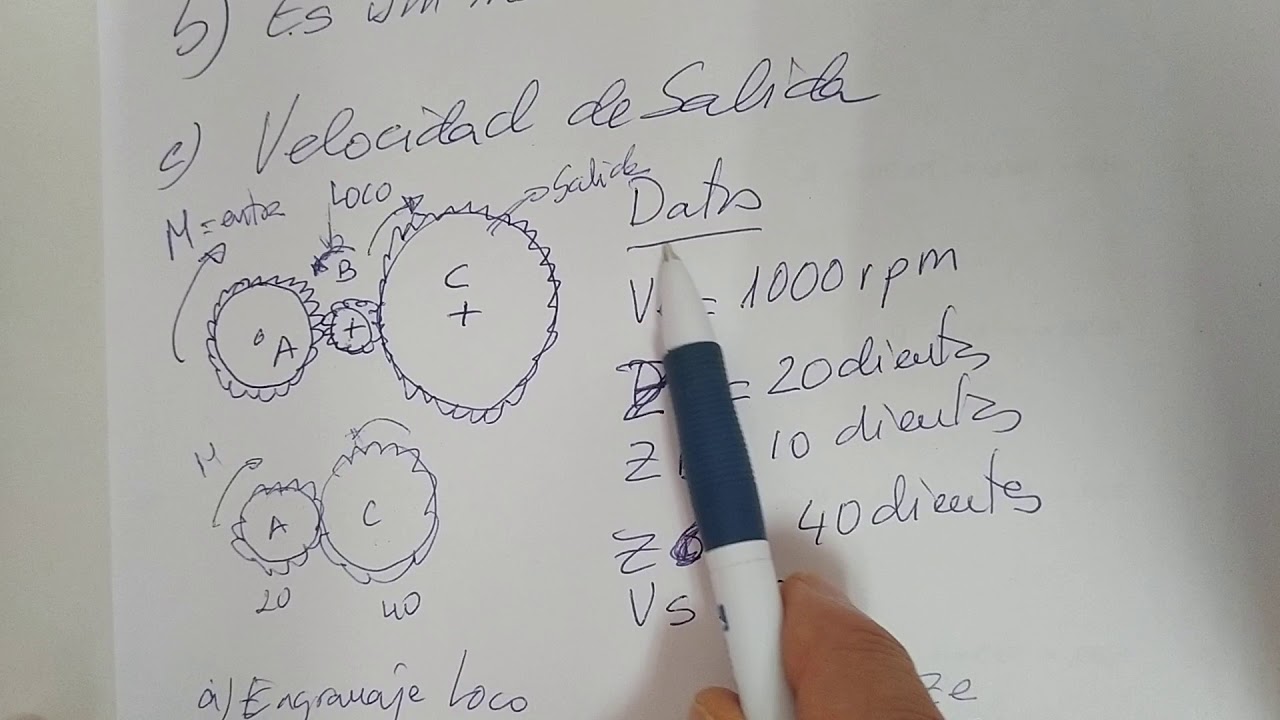 b) Es un
c) Velocidad de Salida
M = entra
LOCO
Salida
B
C
A
Datos
V = 1000 rpm
Z = 20 dientes
Z 10 dientes
Z 40 dientes
Vs
M
A
C
20
40
a) Engranaje Loco